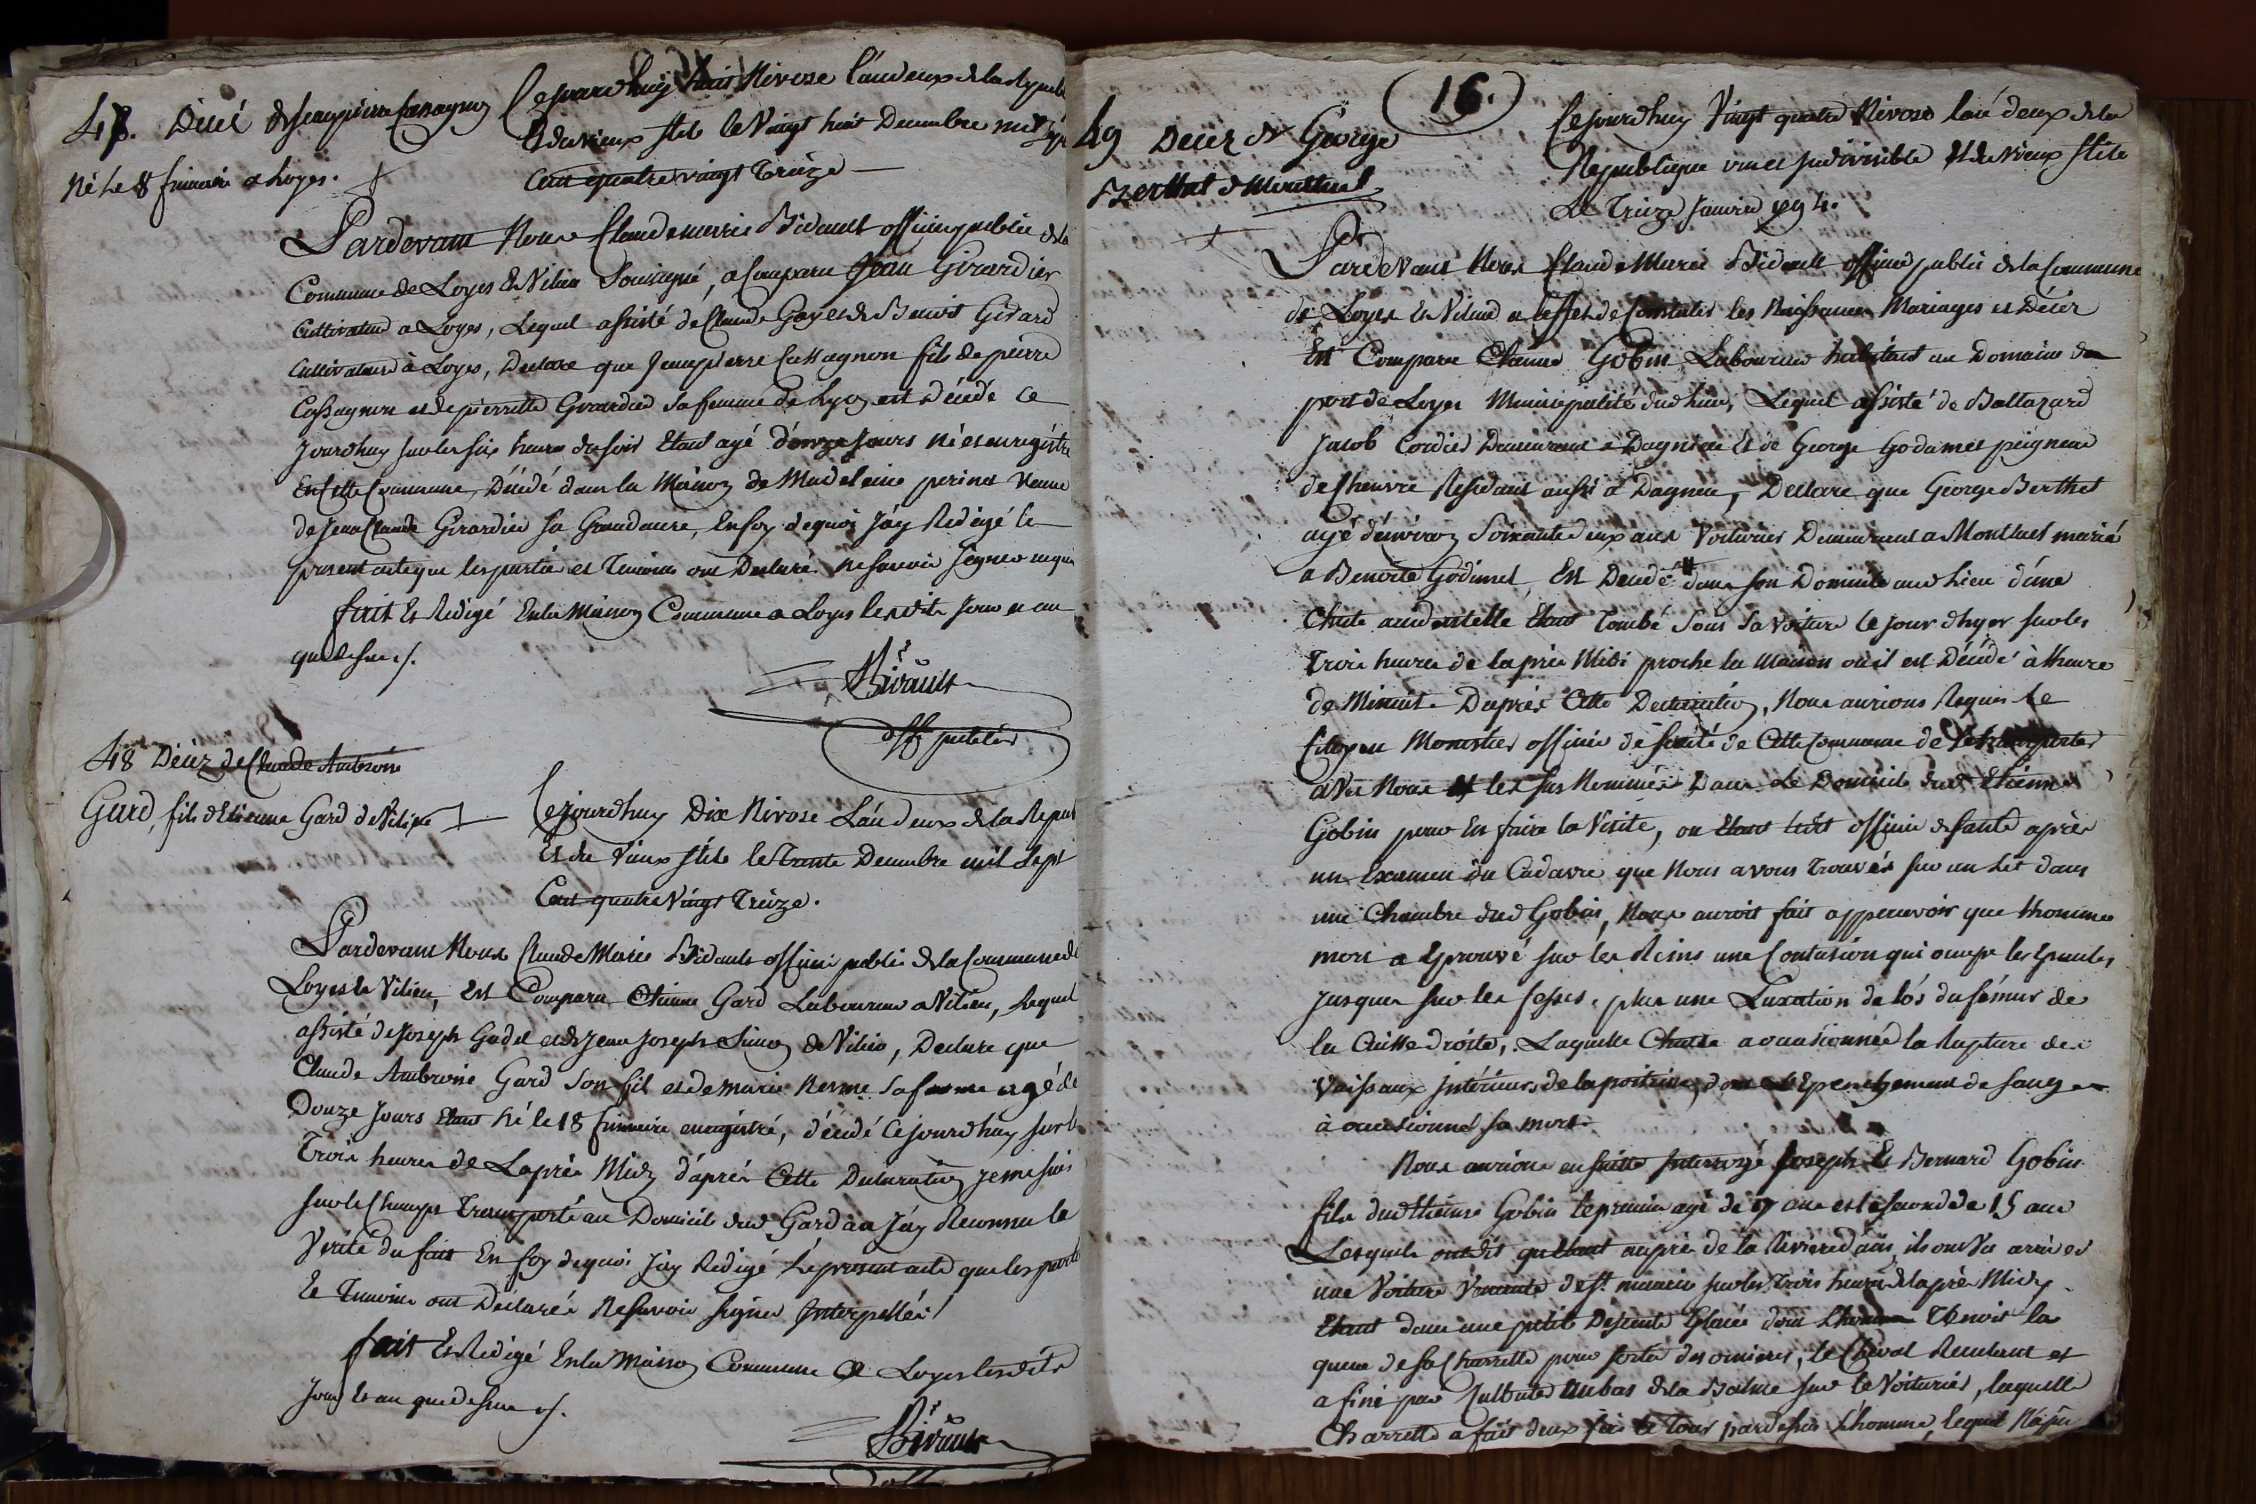 47. Décé de Jean pierre Cassagnon
Né le 8 frimaire a Loyes.
Cejourdhuy huit Nivose l'an deux de la Republ
Et du vieux stile le Vingt huit Decembre mil sept
Cent quatre vingt Treize —
Pardevant Nous Claude marie Bidault officier public de la
Commune de Loyes Et Vilieu Soussigné, a Comparu Jean Girardier
Cultivateur a Loyes, Lequel assisté de Claude Goy et de Benoit Girard
Cultivateurs à Loyes, Declare que Jean pierre Cassagnon fils de pierre
Cassagnon et de pierrette Girardier sa femme de Lyon est décédé ce
Jourdhuy sur les six heures du soir Etant agé d'onze Jours né et enregistré
En Cette Commune, Décédé dans la Maison de Madeleine perinet Veuve
de Jean Claude Girardier sa Grandmere, En foy de quoi J'ay Redigé le
present acte que les parties et Temoins ont Declaré ne savoir signer requis
fait Et Redigé En la Maison Commune a Loyes lesdits Jour et an
que dessus ./.
Bidault
off. public
48 Décéz de Claude Ambroise
Gard, fils d'Etienne Gard de Vilieu
Cejourdhuy Dix Nivose L'an deux de la Repub
Et du Vieux stile le Trente Decembre mil Sept
Cent quatre Vingt Treize.
Pardevant Nous Claude Marie Bidault officier public de la Commune de
Loyes Et Vilieu, Est Comparu Etienne Gard Laboureur a Vilieu, Lequel
assisté de Joseph Godet et de Jean Joseph Simon de Vilieu, Declare que
Claude Ambroise Gard son fil et de marie sa femme agé de
Douze Jours Etant né le 18 frimaire enregistré, décédé Cejourdhuy sur les
Trois heures de Lapres Midy d'après Cette Declaration je me suis
sur le Champs Transporté au Domicil dud Gard ou J'ay Reconnu la
Vérité du fait En foy de quoi J'ay Redigé le present acte que les parties
Et Temoins ont Déclarés ne savoir signer Interpellés
fait Et Redigé En la Maison Commune de Loyes lesdits
Jour Et an que dessus ./.
Bidault
16.
49 Décéz de George
Berthet de Montluel
Cejourdhuy Vingt quatre Nivose l'an deux de la
Republique une et Indivisible Et du Vieux Stile
Le Treize Janvier 1794.
Pardevant Nous Claude Marie Bidault officier public de la Commune
de Loyes Et Vilieu a leffet de Constater les Naissances Mariages et Décéz
Est Comparu Etienne Gobin Laboureur habitant au Domaine du
port de Loyes Municipalité dud lieu, Lequel assisté de Baltazard
Jacob Cordier Demeurant a Dagneux Et de George Godamet peigneur
de Chanvre Residant aussi a Dagneux, Declare que George Berthet
agé d'environ Soixante deux ans Voiturier Demeurant a Montluel marié
a Benoite Godimet, Est Decédé dans son Domicile aud lieu d'une
Chute accidentelle Etant Tombé sous sa voiture le jour d'hyer sur les
Trois heures de lapres Midi proche la Maison ou il est Décédé à l'heure
de Minuit. Daprès Cette Declaration, Nous aurions Requis le
Citoyen Monestier officier de santé de Cette Commune de se transporter
avec Nous Et les sus Nommés Dans Le Domicile dud Etienne
Gobin pour En faire la Visite, ou Etant ledit officier de santé après
un Examen du Cadavre que Nous avons Trouvés sur un Lit dans
une Chambre dud Gobin, Nous auroit fait appercevoir que l'homme
mort a Eprouvé sur les Reins une Contusion qui occupe les Epaules
Jusques sur les fesses, plus une Luxation de l'os du fémur de
la Cuisse droite, Laquelle Chutte a occasionnée la Rupture des
Vaisseaux Intérieurs de la poitrine, dont l'Epenchement de sang
à occasionné sa mort.
Nous aurions ensuitte Interrogé Joseph Et Bernard Gobin
fils dud Etienne Gobin le premier agé de 17 ans et le second de 15 ans
Lesquels ont dit qu'Etant auprès de la Riviere d'ain, ils ont Vu arriver
une Voiture Venante de St. maurice sur les Trois heures de lapres Midy
Etant dans une petite Descente Glacée dont l'homme Tenoit la
queue de sa Charrette pour sortir des ornieres, le Cheval Reculant et
a fini par Culbuter Enbas de la Balme sur le Voiturier, laquelle
Charrette a fait deux fois le Tour par dessus L'homme, lequel N'a pu